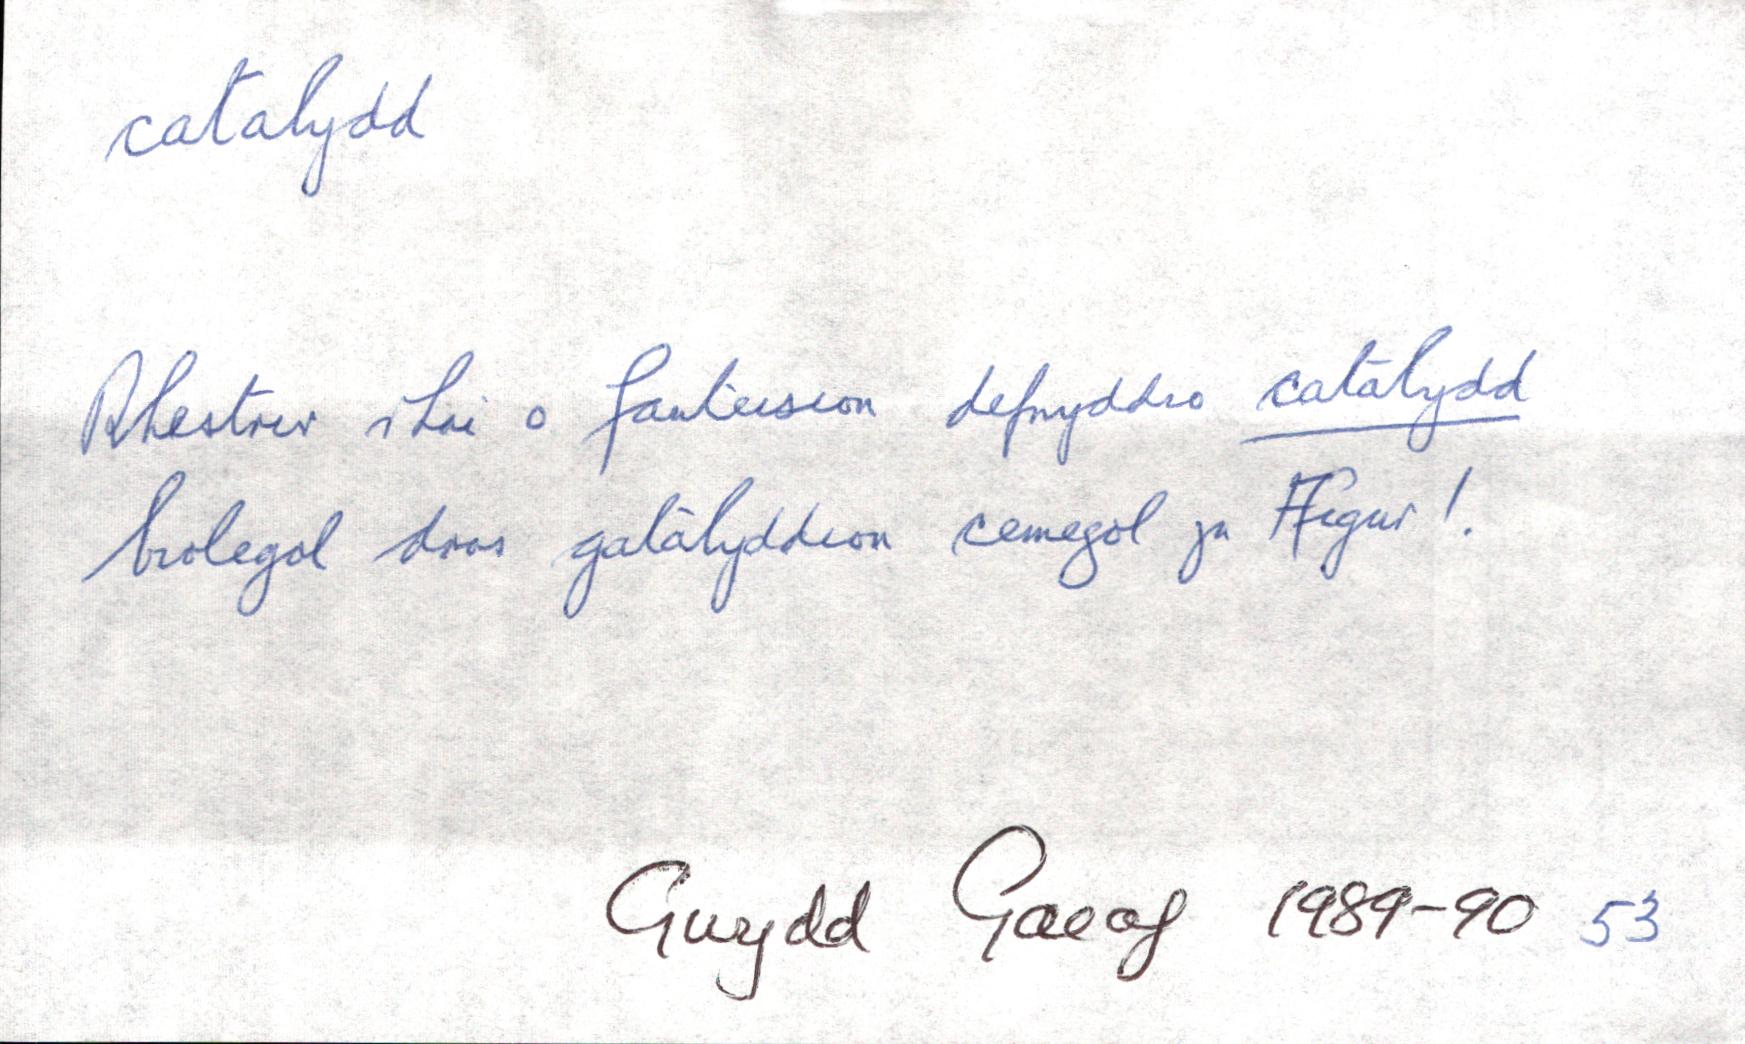 catalydd
Rhestrir rhai o fanteision defnyddio catalydd
biolegol dros gatalyddion cemegol yn Ffigur 1.
Gwydd Gaeaf 1989-90 53